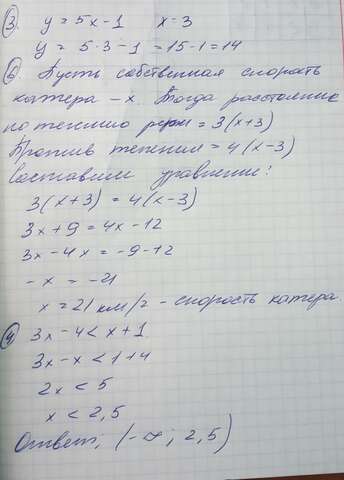 3. y = 5x - 1 x = 3
y = 5·3 - 1 = 15 - 1 = 14
6. Пусть собственная скорость
катера - x. Тогда расстояние
по течению реки = 3(x+3)
Против течения = 4(x-3)
Составим уравнение:
3(x+3) = 4(x-3)
3x + 9 = 4x - 12
3x - 4x = -9 - 12
-x = -21
x = 21 км/г - скорость катера.
4. 3x - 4 < x + 1
3x - x < 1 + 4
2x < 5
x < 2,5
Ответ: (-∞; 2,5)